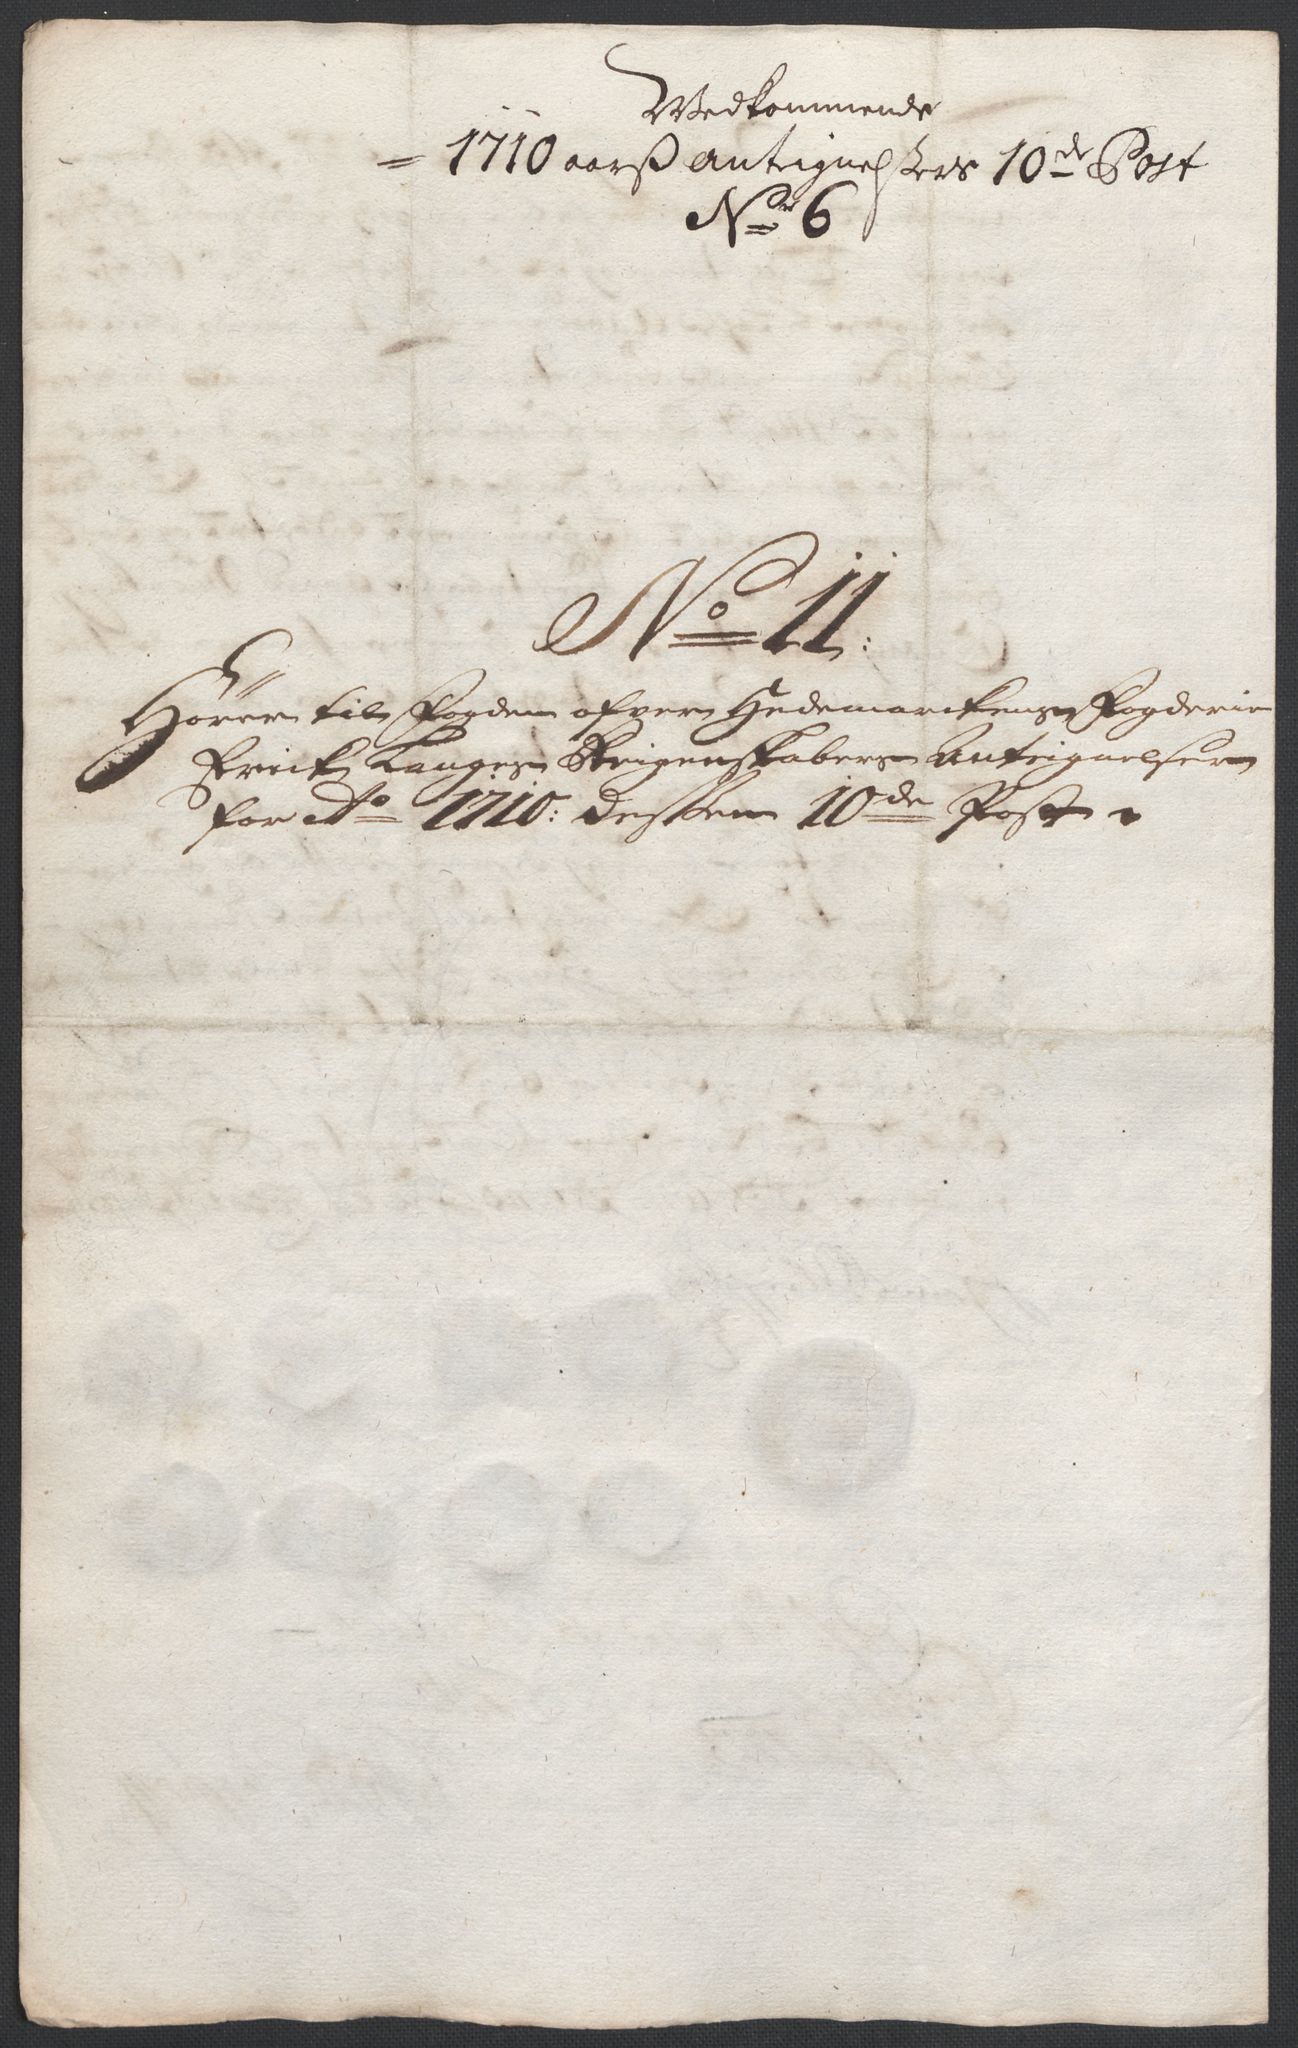 Vedkommende
= 1710 aarß Antegnelßers 10de Post
No 6
No 11:
Hörer til Fogden ofver Hedemarckens Fogderie
Frick Langes Reigenskabers Antegnelser
for Ao 1710: dessen 10de Post